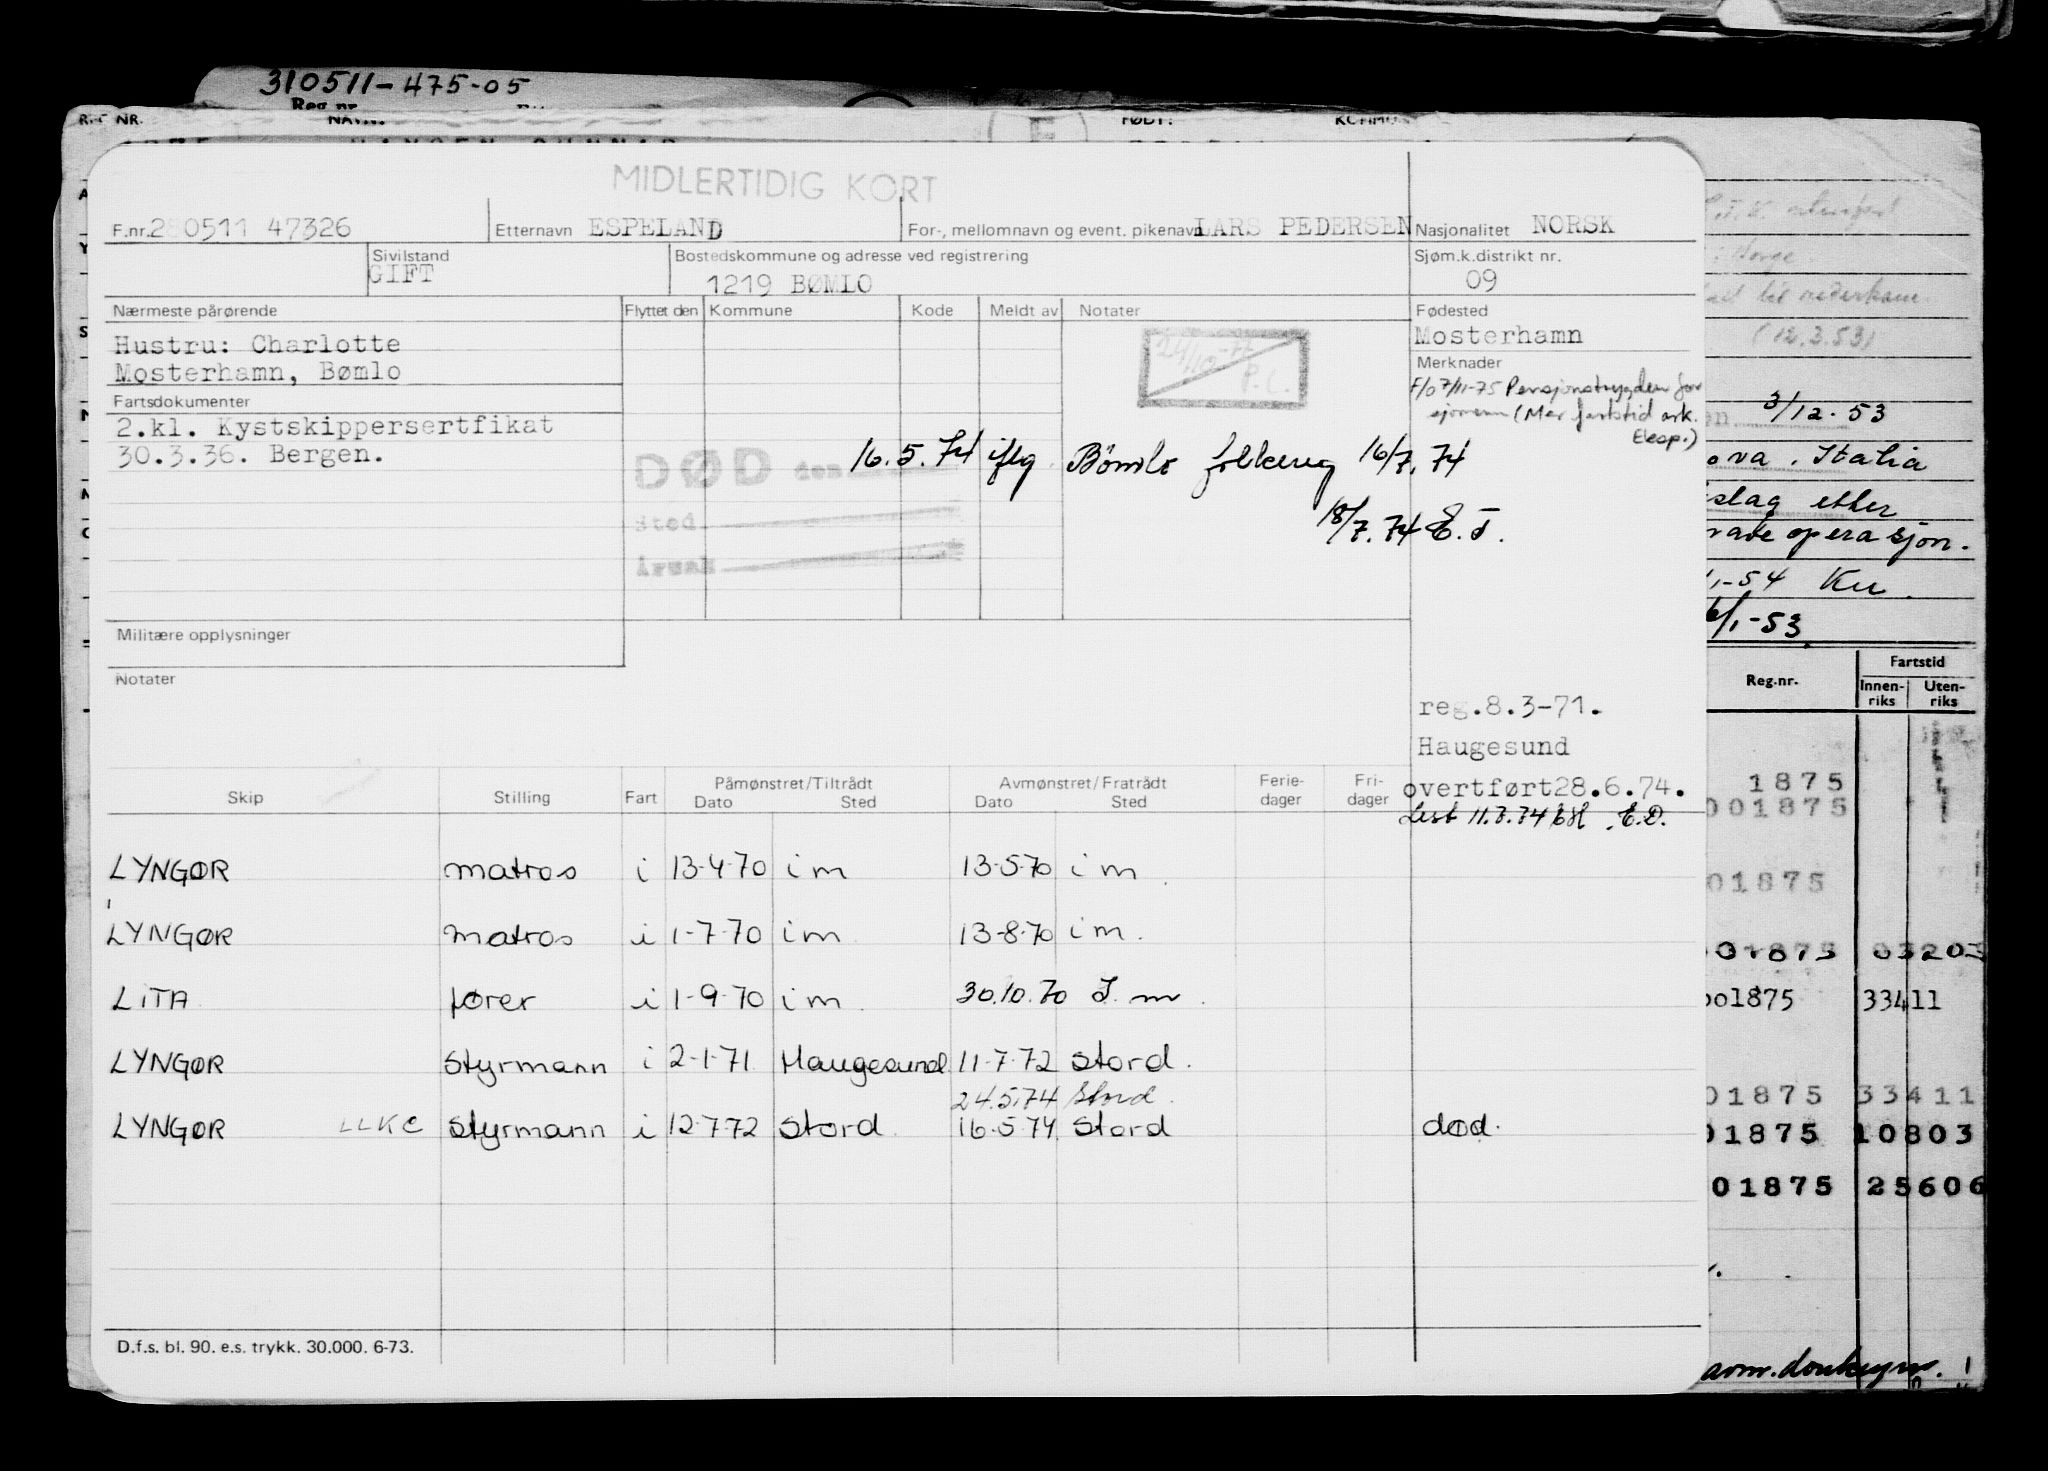 310511-475-05
Reg.nr.
NR. NAVN: FØDT: KOMMU
MIDLERTIDIG KORT
F.nr. 280511 47326 Etternavn ESPELAND For-, mellomnavn og event. pikenavn LARS PEDERSEN Nasjonalitet NORSK
Sivilstand GIFT Bostedskommune og adresse ved registrering 1219 BØMLO Sjøm.k.distrikt nr. 09
Nærmeste pårørende Flyttet den Kommune Kode Meldt av Notater Fødested
Hustru: Charlotte 24/10-77 Mosterhamn
Mosterhamn, Bømlo P.L. Merknader
Fartsdokumenter F/O 7/11-75 Pensjonstrygden for
2.kl. Kystskippersertfikat sjømenn (Mer fartstid ark.
Eksp.)
30.3.36. Bergen. DØD den 16.5.74 iflg Bømlo folkereg 16/7.74
Sted 18/7.74 E.T.
Årsak
Militære opplysninger
Notater
reg.8.3-71.
Haugesund
overtført28.6.74.
Skip Stilling Fart Påmønstret/Tiltrådt Dato Sted Avmønstret/Fratrådt Dato Sted Ferie-dager Fri-dager
11.7.74 E.D.
LYNGØR matros i 13-4-70 i m 13-5-70 i m.
LYNGØR matros i 1-7-70 i m. 13-8-70 i m.
LITA fører i 1-9-70 i m. 30.10.70 I. m.
LYNGØR Styrmann i 2-1-71. Haugesund 11-7-72 Stord.
24.5.74 Stord.
LYNGØR LLKC Styrmann i 12-7-72 Stord. 16-5-74 Stord død.
D.f.s. bl. 90. e.s. trykk. 30.000. 6-73.
: Norge.
(12.3.53)
3/12-53
ova. Italia
slag etter
operasjon.
1-54
/1-53.
Reg.nr. Fartstid
Innen-riks Uten-riks
1875
001875
01875
01875 03203
001875 33411
01875 33411
01875 10803
01875 25606